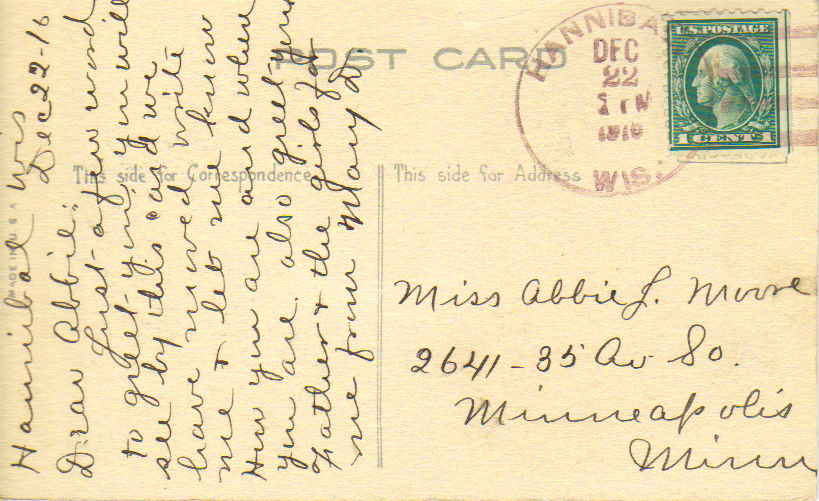 Hannibal Wis
Dec 22-16
Dear Abbie:
Just a few words
to greet you, you will
see by this card we
have moved write
me & let me know
How you are and where
you are. also greet your
Father & the girls for
me from Mary D.
POST CARD
This side for Correspondence
This side for Address
MADE IN U.S.A
HANNIBA
DEC
22
1916
WIS.
U.S. POSTAGE
1 CENT 1
Miss Abbie L. Moore
2641-35 Av So.
Minneapolis
Minn